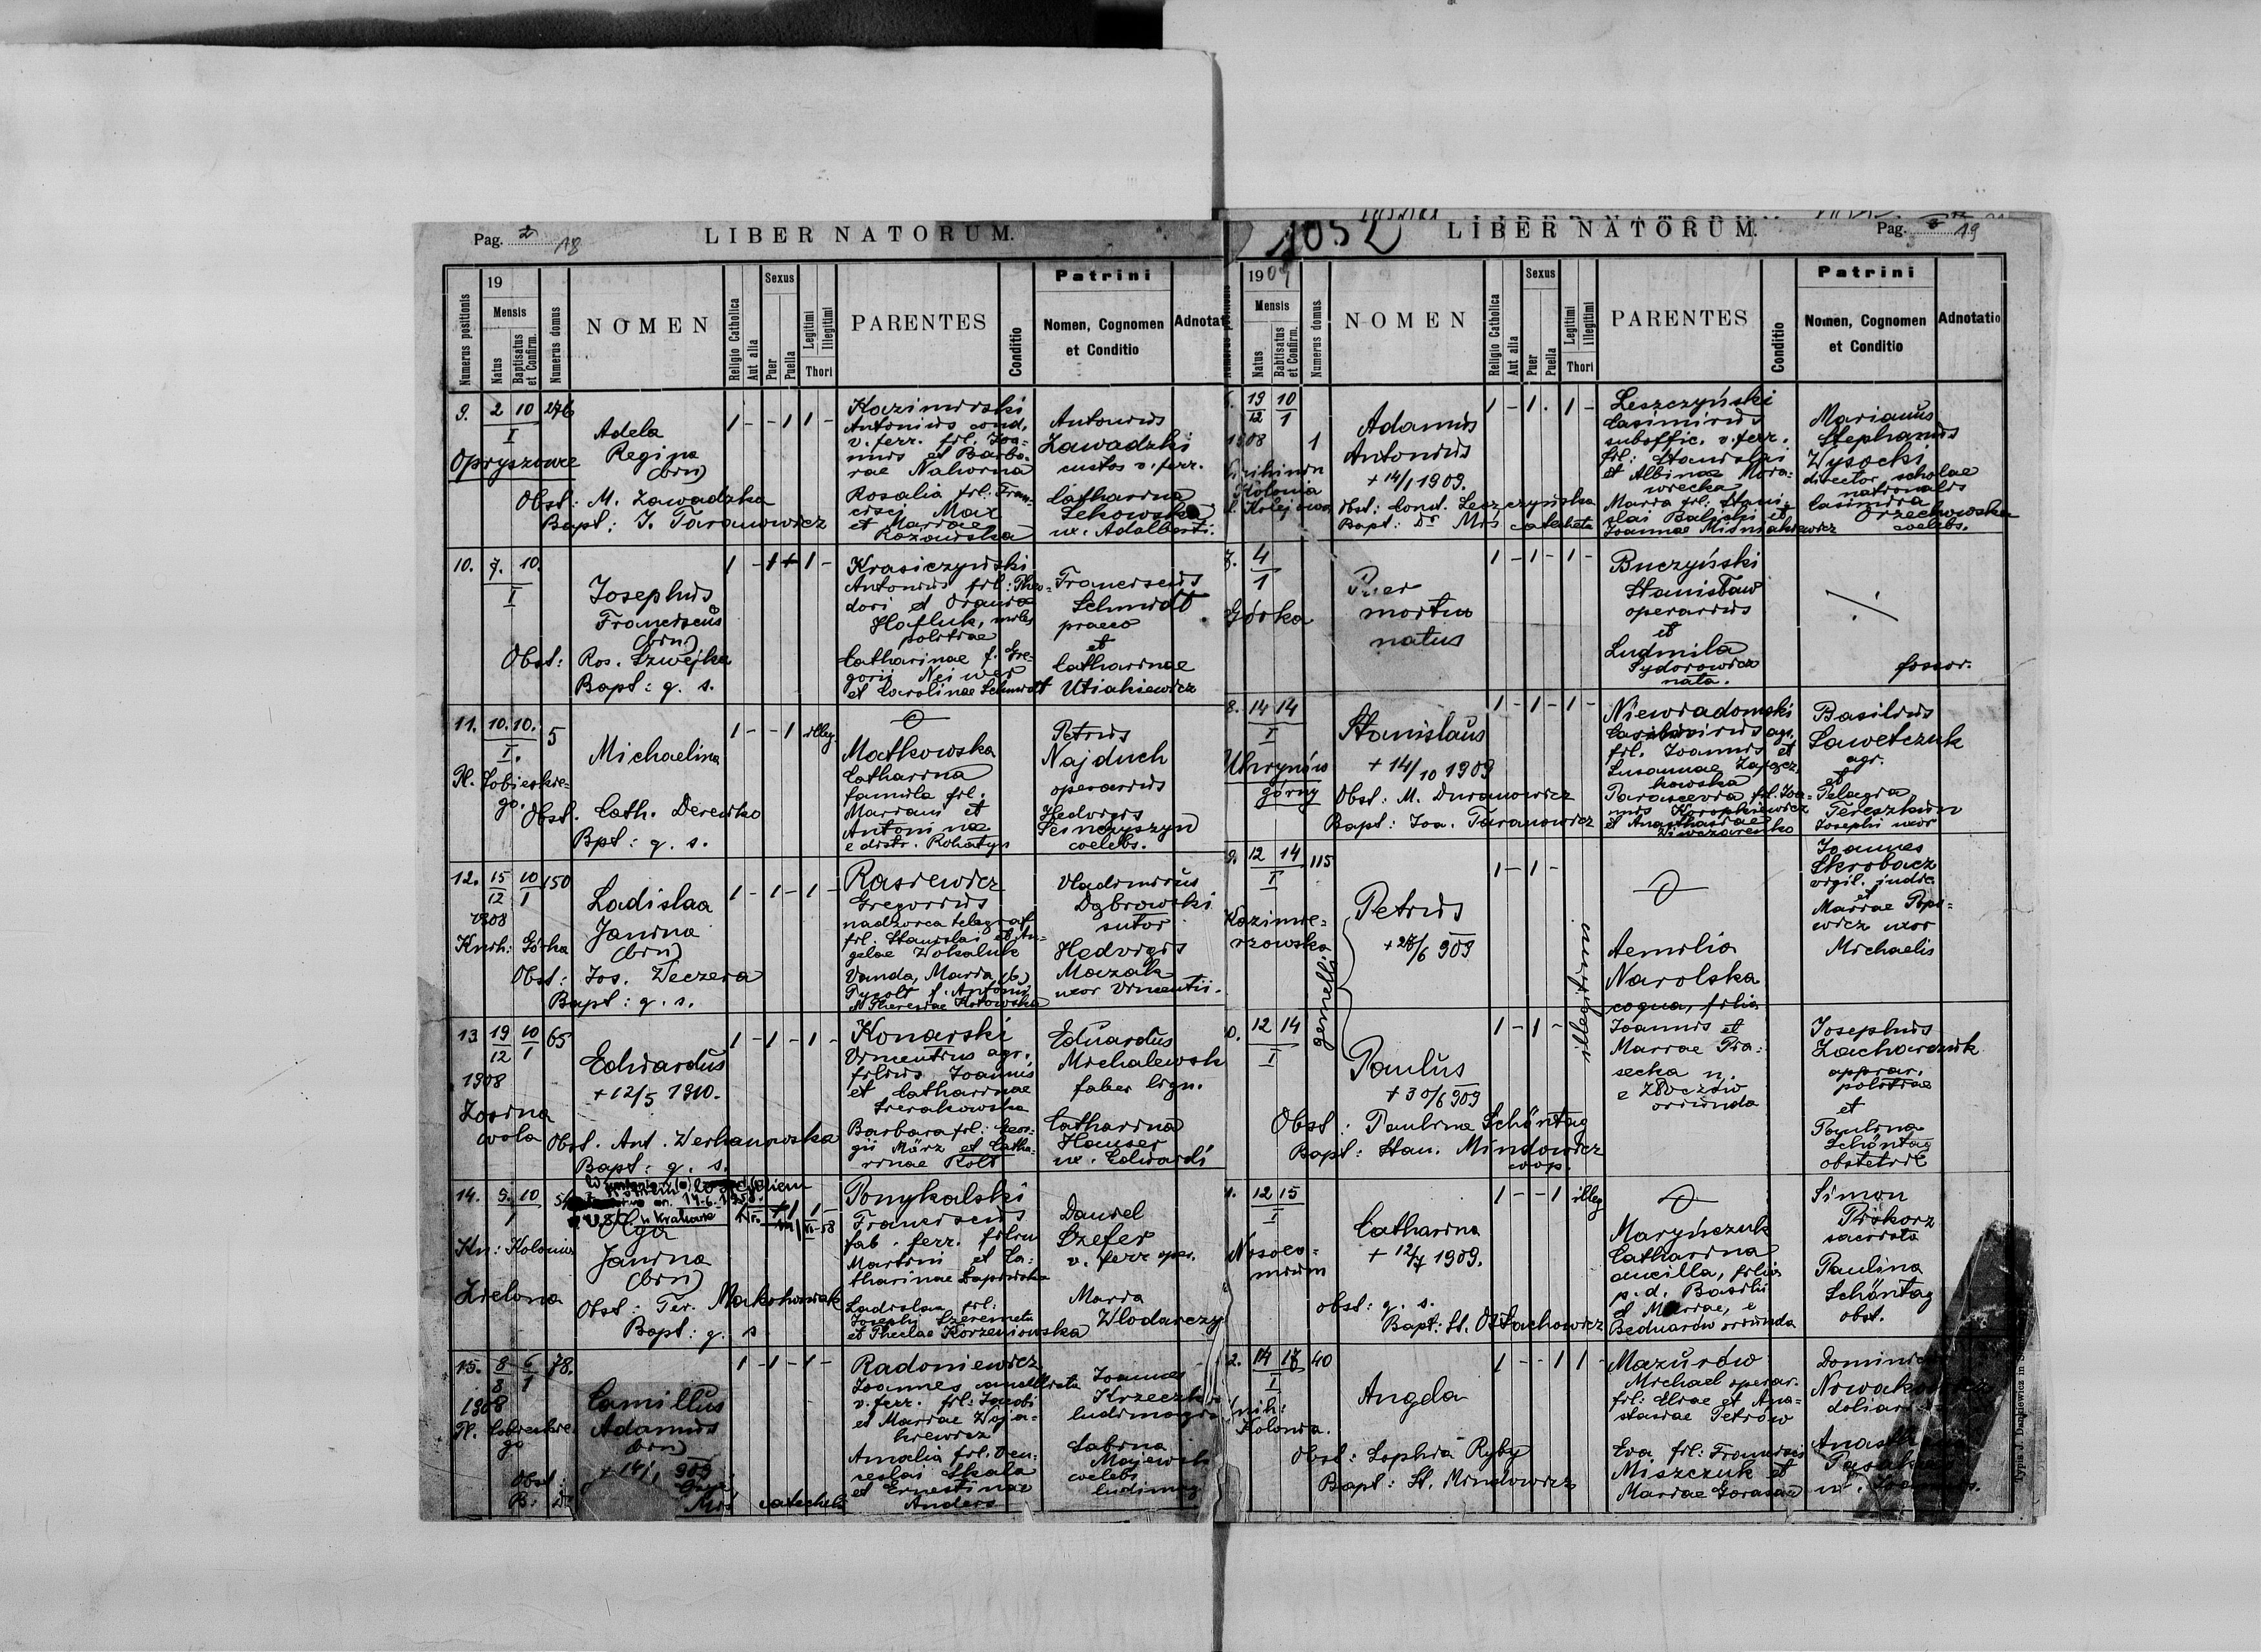 Pag. 2 18
LIBER NATORUM.
Numerus positionis
19
Mensis
Natus
Baptisatus et Confirm.
Numerus domus
NOMEN
Religio Catholica
Aut alia
Sexus
Puer
Puella
Legitimi
Illegitimi
Thori
PARENTES
Conditio
Patrini
Nomen, Cognomen
et Conditio
Adnotat
9. 2 10 276
I
Opryszowce
Adela
Regina
(brn)
Obst: M. Zawadzka
Bapt: J. Taranowicz
1 - - 1 1 -
Antonius cond.
v. ferr. fil. Joa-
nnis et Barba-
rae Nahorna
Rosalia fil. Fran-
cisci Max
et Mariae
Rozowska
Antonius
Zawadzki
custos v. ferr.
Catharina
Lekowska
ux. Adalberti.
10. 7. 10.
I
Josephus
Franciscus
(brn)
Obst: Ros. Szwejka
Bapt: q. s.
Krasiczyński
Antonius fil: Theo-
dori et
Hafluk, miles
politiae
Catharinae f. Gre-
gorii Neiwer
et Carolinae Schmidt
Franciscus
Schmidt
praeco
et
Catharinae
Utiakiewicz
11. 10. 10. 5
I.
Pl. Sobieskie-
go.
Michaelina
Obst. Cath. Derewko
Bpt: q. s.
1 - - 1 illeg.
Matkowska
Catharina
famula fil.
Mariani et
Antoninae
e distr. Rohatyn
Petrus
Najduch
operarius
Hedvigis
Senczyszyn
coelebs.
12. 15 10 150
12 1
1908
Knih: Górka
Ladislaa
Janina
(brn)
Obst: Jos. Weczera
Bapt: q. s.
1 - 1 - 1 -
Rasiewicz
Gregorius
nadzorca telegraf
fil. Stanislai et An-
gelae Wokaluk
Vanda, Maria (b)
Pyzolt f. Antonii
et Theresiae Kotowska
Vladimirus
Dąbrowski
sutor
Hedvigis
Mazak
uxor Vincentii.
13 19 10 65
12 1
1908
Zosina
wola
Edwardus
+ 12/5 1910.
Obst. Ant. Werhanowska
Bapt: q. s.
1 - 1 - 1 -
Konarski
Vincentius agr.
filius Joannis
et Catharinae
Sierakowska
Barbara fil: Geor-
gii März et Catha-
rinae Kolb
Eduardus
Michalewsk
faber lign.
Catharina
Hauser
ux. Edwardi
14. 9. 10
1
Kn: Kolonia
Zielona
USC w Krakowie
Olga
Janina
(brn)
Obst: Ter. Makohoniak
Bapt: q. s
Ponykalski
Franciscus
fab. ferr. filius
Martini et Ca-
tharinae Łapińska
Ladislaa fil:
Josephi Szeremeta
et Theclae Korzeniowska
Daniel
Szefer
v. ferr. oper.
Maria
Wlodarczy
15. 8 6 78.
8 1
1908
Pl. Sobieskie-
go
Camillus
Adamus
(brn)
+ 14/1 909
Obst:
B: Dr Mrs catecheta
1 - 1 - 1 -
Radoniewicz
Joannes cancellista
v. ferr. fil: Jacobi
et Mariae Woja-
kiewicz
Amalia fil. Ven-
ceslai Skala
et Ernestinae
Anders
Joannes
Krzeczko
ludimagis
Sabina
Majewsk
coelebs
ludimag
1052
LIBER NATORUM.
Pag. 3 19
1909
Mensis
Natus
Babtisatus et Confirm.
Numerus domus
NOMEN
Religio Catholica
Aut alia
Sexus
Puer
Puella
Legitimi
Illegitimi
Thori
PARENTES
Conditio
Patrini
Nomen, Cognomen
et Conditio
Adnotatio
19 10
12 1
1908 1
Kolonia
Kolejowa
Adamus
Antonius
+ 14/1 1909.
Obst: Const. Leszczyńska
Bapt: Dr Mrs catecheta
1 - 1 . 1 -
Leszczyński
Casimirus
suboffic. v. ferr.
fil: Stanislai
et Albinae Mora-
wiecka
Maria fil. Stani-
slai Balicki et
Joannae Misniakiewicz
Marianus
Stephanus
Wysocki
director scholae
nationalis
Casimira
Orzechowska
coelebs.
7. 4
1
Górka
Puer
mortuo
natus
1 - 1 - 1 -
Buczyński
Stanisław
operarius
et
Ludmila
Sydorowicz
nata.
fossor.
8. 14 14
I
Uhrynów
górny
Stanislaus
+ 14/10 1909
Obst: M. Duranowicz
Bapt: Joa. Taranowicz
1 - 1 - 1 -
Niewiadomski
Casimirus agr.
fil. Joannis et
Susannae Zającz-
kowska
Parascevia fil. Joa-
nnis Kropkiewicz
et Anasthasiae
Wiwczarenko
Basilius
Sawetczuk
agr.
et
Pelagia
Tereszkun
Josephi uxor
9. 12 14 115
I
Kazimie-
rzowska
Petrus
+ 28/6 909
gemelli
1 - 1 -
illegitimi
Aemilia
Narolska
coqua, filia
Joannis et
Mariae Pia-
secka n.
e Złoczów
oriunda
Joannes
Skrobacz
vigil. judic
et
Mariae Popo-
wicz uxor
Michaelis
0. 12 14
I
Paulus
+ 30/6 909
Obst: Paulina Schöntag
Bapt: Stan. Mindowicz
coop.
1 - 1 -
Josephus
Zacharczuk
apprar.
politiae
et
Paulina
Schöntag
obstetric
1. 12 15
I
Nosoco-
mium
Catharina
+ 12/7 1909.
obst: q. s.
Bapt: St. Ostachowicz
1 - - 1 illeg
Maryńczuk
Catharina
ancilla, filia
p. d. Basilii
et Mariae, e
Bednarów oriunda
Simon
Piskorz
sacrista
Paulina
Schöntag
obst.
2. 14 17 40
I
Knih:
Kolonia.
Angela
Obst: Sophia Ryby
Bapt: St. Mindowicz
1 - - 1 1 -
Mazurów
Michael operar.
fil: Eliae et Ana-
stasiae Petrów
Eva fil: Francisci
Miszczuk et
Mariae Gorasan
Dominic
Nowako
doliari
Anasth
ux.
Typis J. Dankiewicz in S